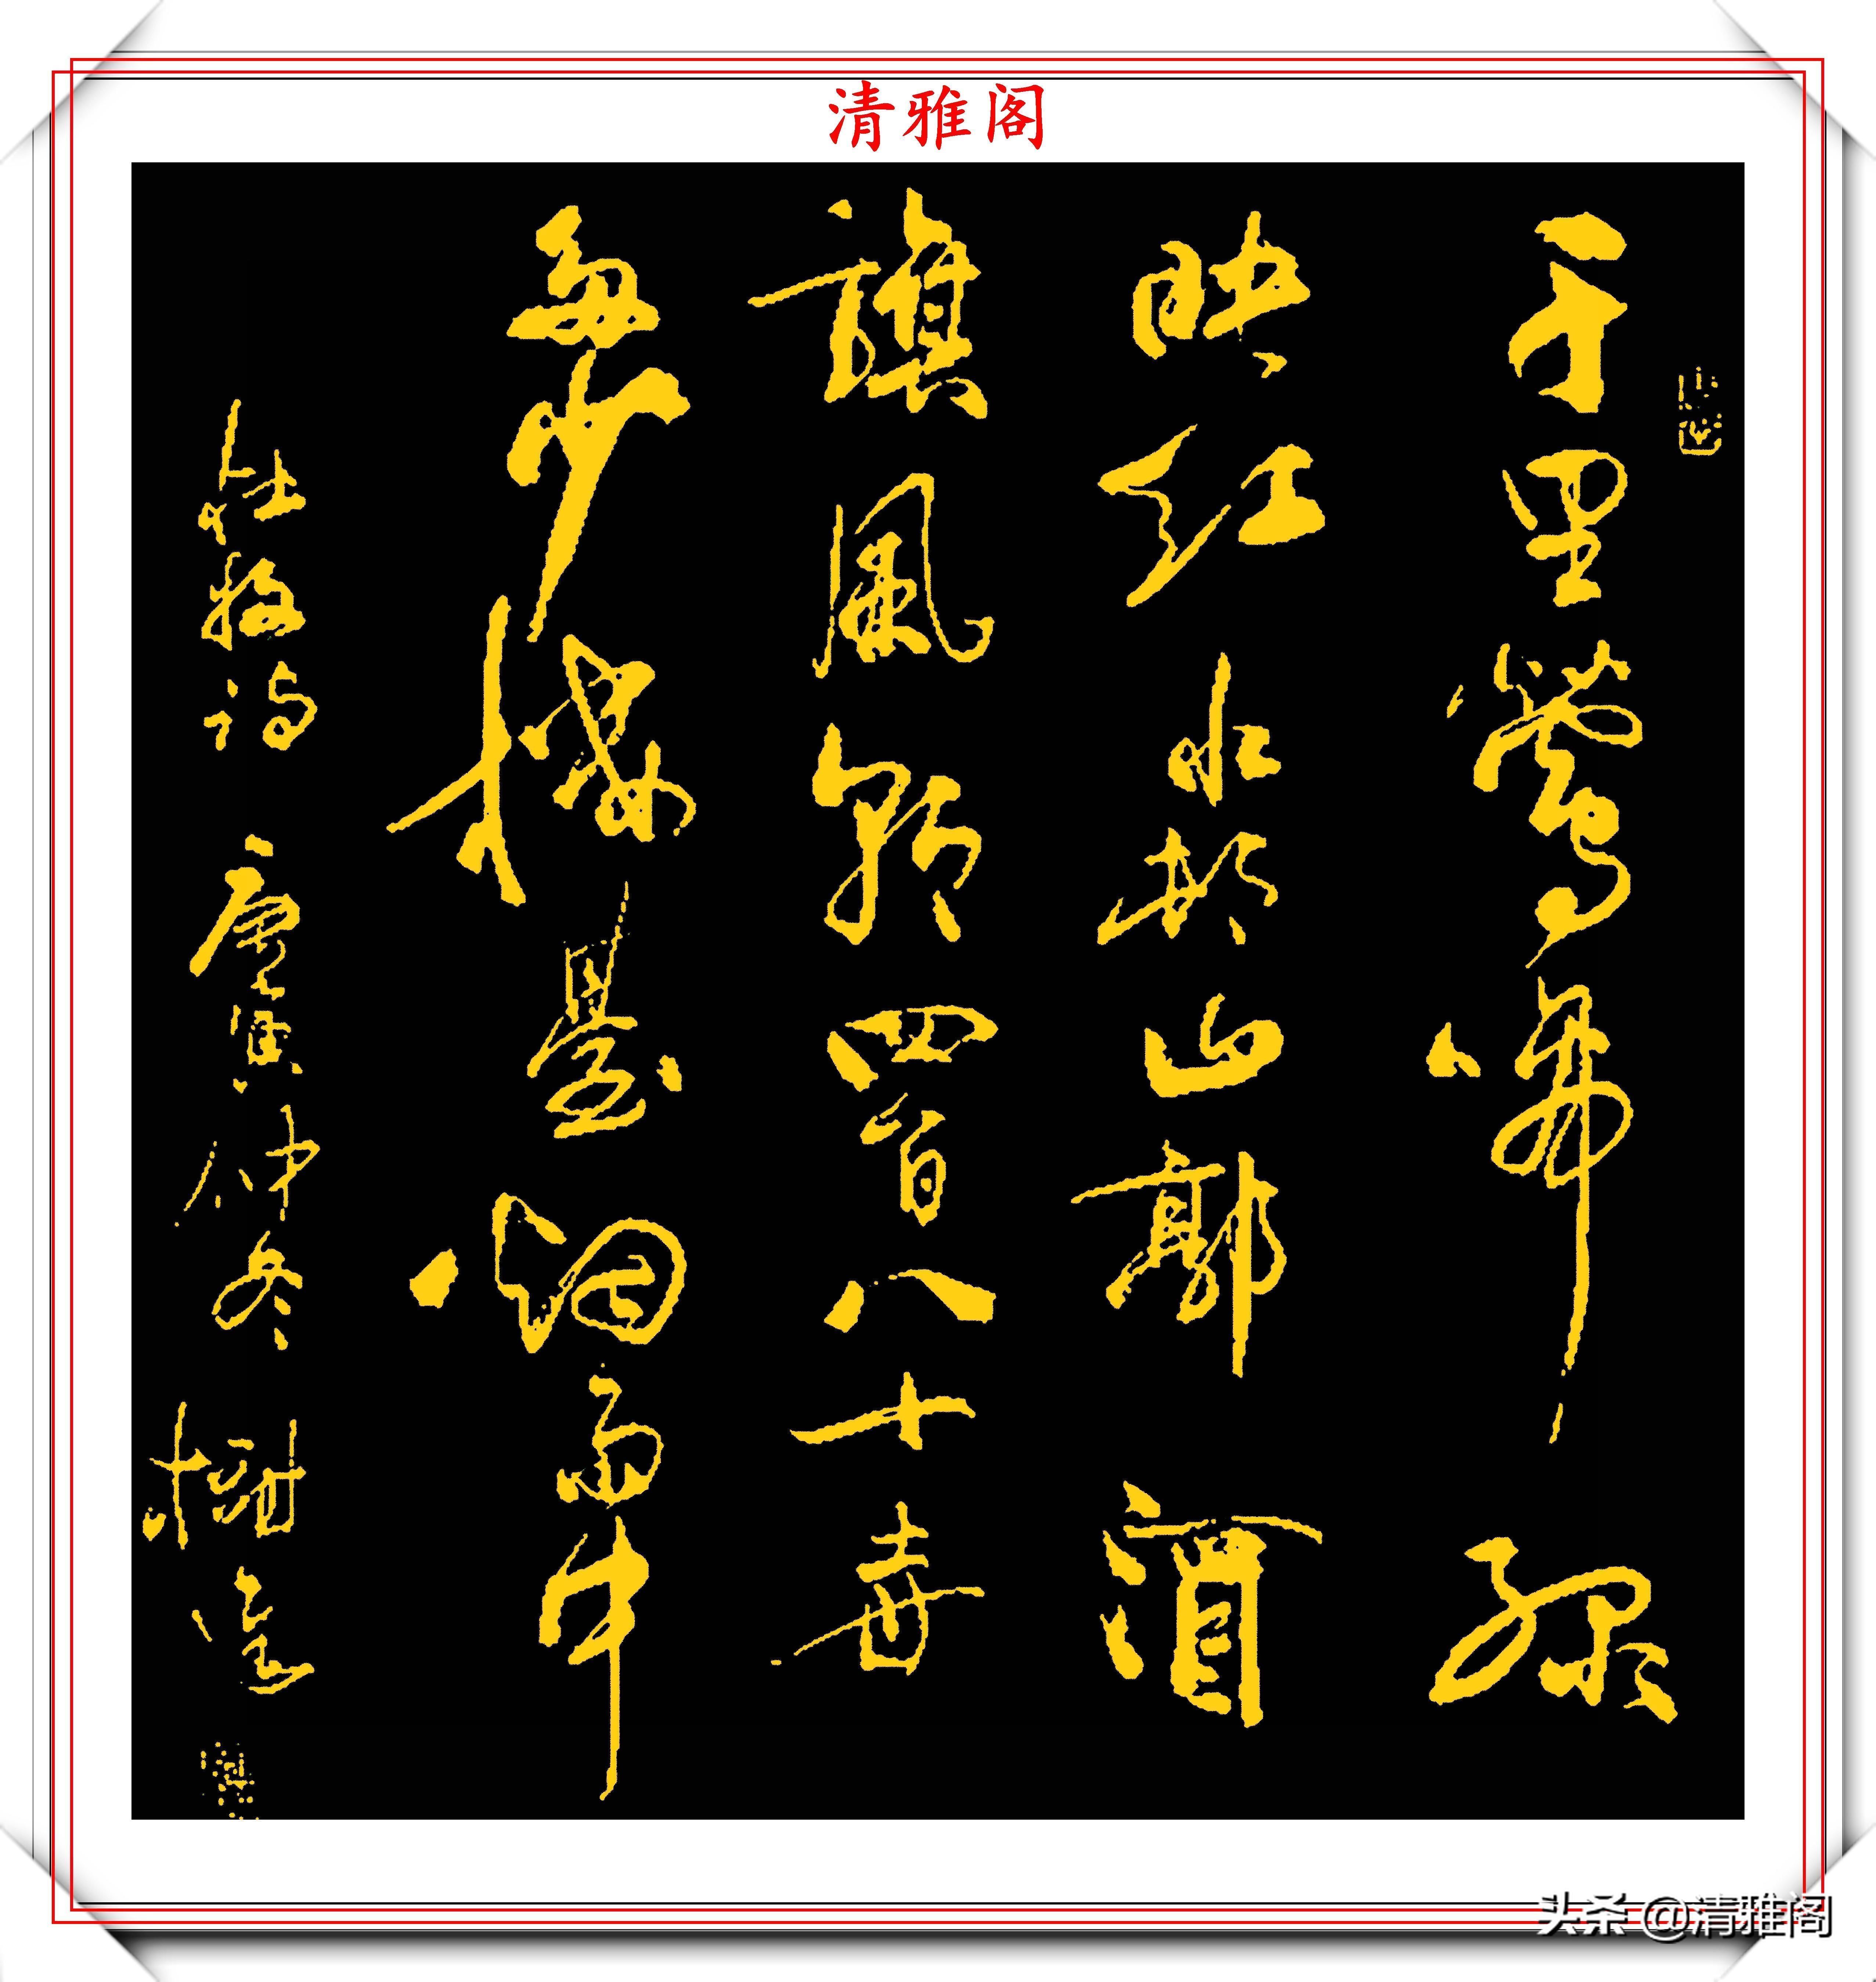 清雅阁
千里鶯啼绿
映红水邨山郭酒
旗風朝四百八十寺
多少楼臺烟雨中
杜牧诗 庚寅仲冬
头条 @清雅阁